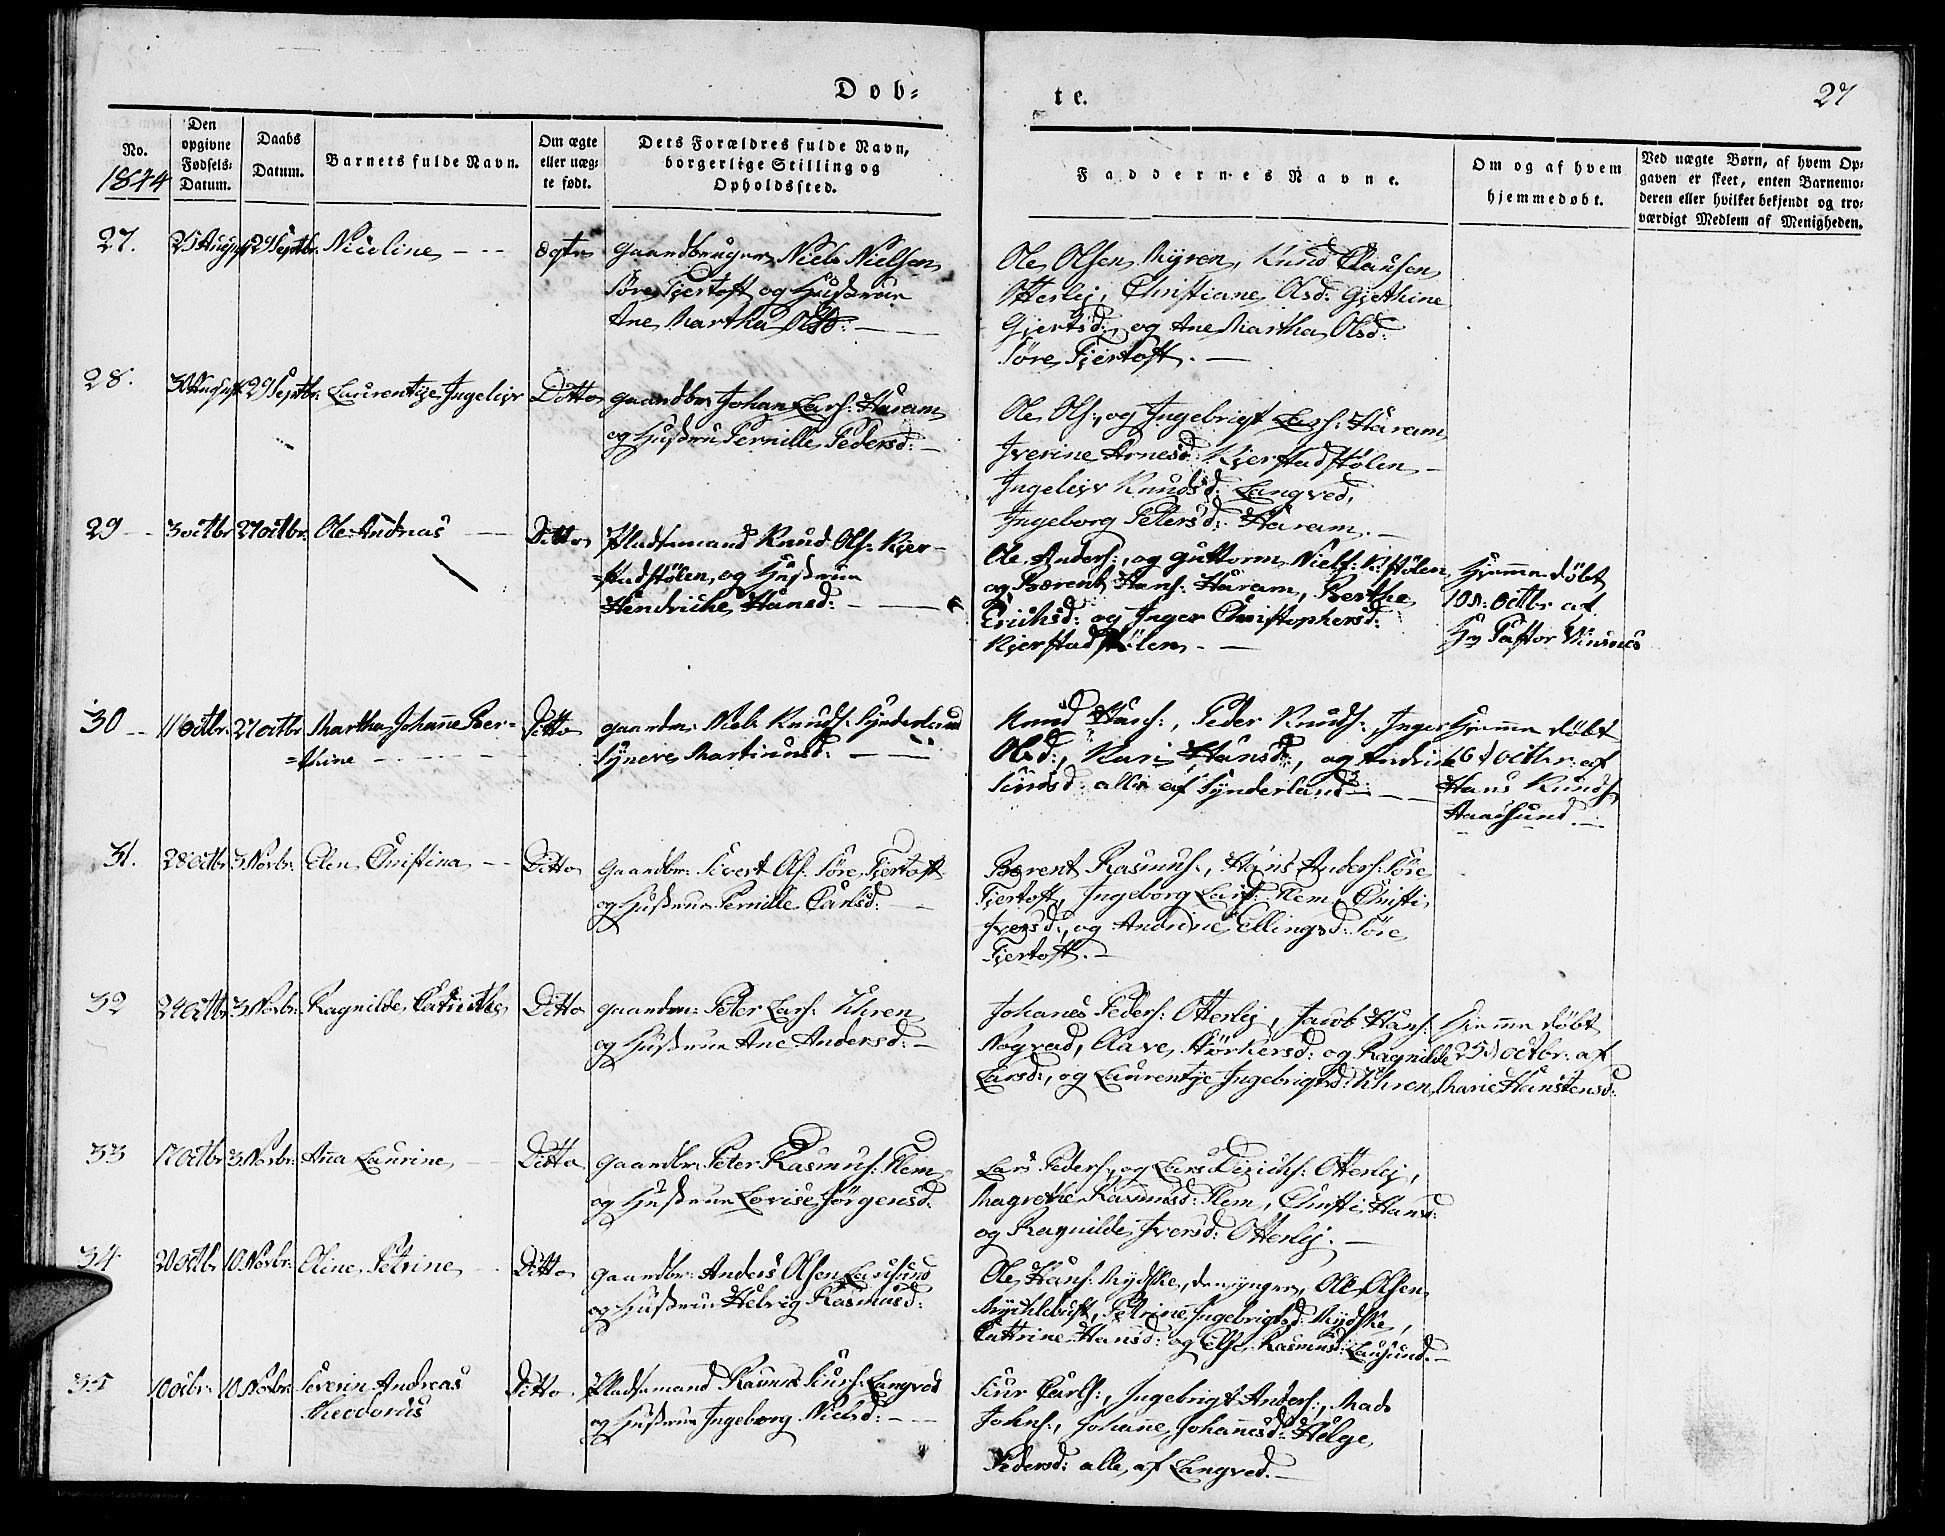 Døb-
te.
27
No.
1844
Den
opgivne
Fødsels-
Datum.
Daabs
Datum.
Barnets fulde Navn.
Om ægte
eller uæg-
te født.
Dets Forældres fulde Navn,
borgerlige Stilling og
Opholdssted.
Faddernes Navne.
Om og af hvem
hjemmedøbt.
Ved uægte Børn, af hvem Op-
gaven er skeet, enten Barnemo-
deren eller hvilket bekjendt og tro-
værdigt Medlem af Menigheden.
27. 25 August 29 Septbr. Nicoline - - ægte
Gaardbruger Niels Nielsen
Søre Fjertoft og Hustrue
Ane Martha Olsd: -
Ole Olsen Myren, Knud Clausen
Otterlej, Christiane Olsd: Gjethine
Gjertsd: og Ane Martha Olsd:
Søre Fjertoft. -
28. 30 August 29 Septbr. Laurentize Ingelivr Ditto
gaardbr. Johan Lars: Haram
og Hustrue Pernille Pedersd: -
Ole Ols:, og Ingebrigt Lars: Haram
Iverine Arnesd: Kjerstadstølen -
Ingelivr Knudsd: Langved,
Ingeborg Petersd: Haram. -
29 - 3 octbr 27 octbr. Ole Andreas - Ditto
Pladsemand Knud Ols: Kjer-
stadstølen, og Hustrue
Hendriche Hansd: -
Ole Anders:, og Guttorm Niels: K:stølen
og Berent Hans: Haram, Berthe
Erichsd: og Inger Christophersd:
Kjerstadstølen - -
Hjemme døbt
10d: octbr af
Hr Pastor Winsnes
30 - 11 octbr. 27 octbr Martha Johanne Ber-
=thine - Ditto
gaardm: Niels Knuds: Synderland
Syneve Martinusd: -
Knud Hans:, Peder Knuds:, Inger
Olsd:, Kari Hansd:, og Andrine
Simsd: alle af Synderland -
Hjemme døbt
16d octbr: af
Hans Knuds:
Haarsund. -
31. 28 octbr 3 Novbr: Elen Christina - Ditto
Gaardbr: Sivert Ols: Søre Fjertoft
og Hustrue Pernille Carlsd: -
Berent Rasmus:, Hans Anders: Søre
Fjertoft, Ingeborg Larsd: Flem, Christi
Iversd:, og Andrine Ellingsd: Søre
Fjertoft. -
32 24 octbr 3 Novbr: Ragnilde Cathrithe Ditto
gaardm: Peter Lars: Uhren
og Hustrue Ane Andersd: -
Johanes Peders: Otterlej, Jacob Hans:
Nogved, Aave Størkersd: og Ragnilde
Larsd:, og Laurentze Ingebrigtsd: Uhren
Hiemme døbt
25d octbr: af
Marie Hanstensd:
33 17 octbr 3 Novbr: Ana Laurine - Ditto
gaardbr. Peter Rasmus: Flem
og Hustrue Lovise Jørgensd:
Lars Peders:, og Lars Didrichs: Otterlej,
Magrethe Rasmusd: Flem, Christi Hansd:
og Ragnilde Iversd: Otterlej. -
34 20 octbr 10 Novbr: Oline Petrine - Ditto
gaardbr: Anders Olsen Lausund
og Hustrue Helvig Rasmusd:
Ole Hans: Rydske, den yngre, Ole Olsen
Mychlebust, Petrine Ingebrigtsd: Rydske,
Cathrine Hansd: og Else Rasmusd: Lausund. -
35 10 octbr. 10 Novbr: Severin Andreas
Theodorus Ditto
Pladsemand Rasmus Siurs: Langved
og Hustrue Ingeborg Nielsd: -
Siur Carls:, Ingebrigt Anders:, Mads
Johns:, Johanne Johannesd: Helge
Pedersd: alle af Langved. -